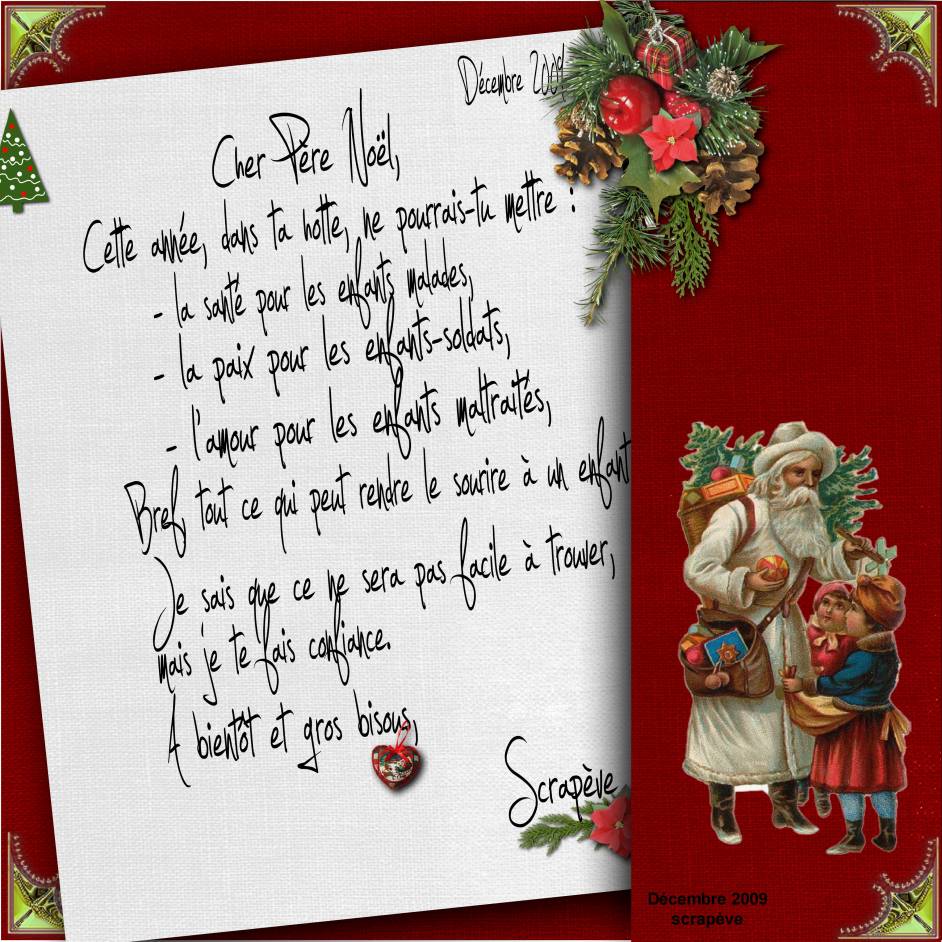 Décembre 2009
Cher Père Noël,
Cette année, dans ta hotte, ne pourrais-tu mettre :
- la santé pour les enfants malades,
- la paix pour les enfants-soldats,
- l'amour pour les enfants maltraités,
Bref, tout ce qui peut rendre le sourire à un enfant
Je sais que ce ne sera pas facile à trouver,
mais je te fais confiance.
A bientôt et gros bisous,
Scrapève
Décembre 2009
scrapéve